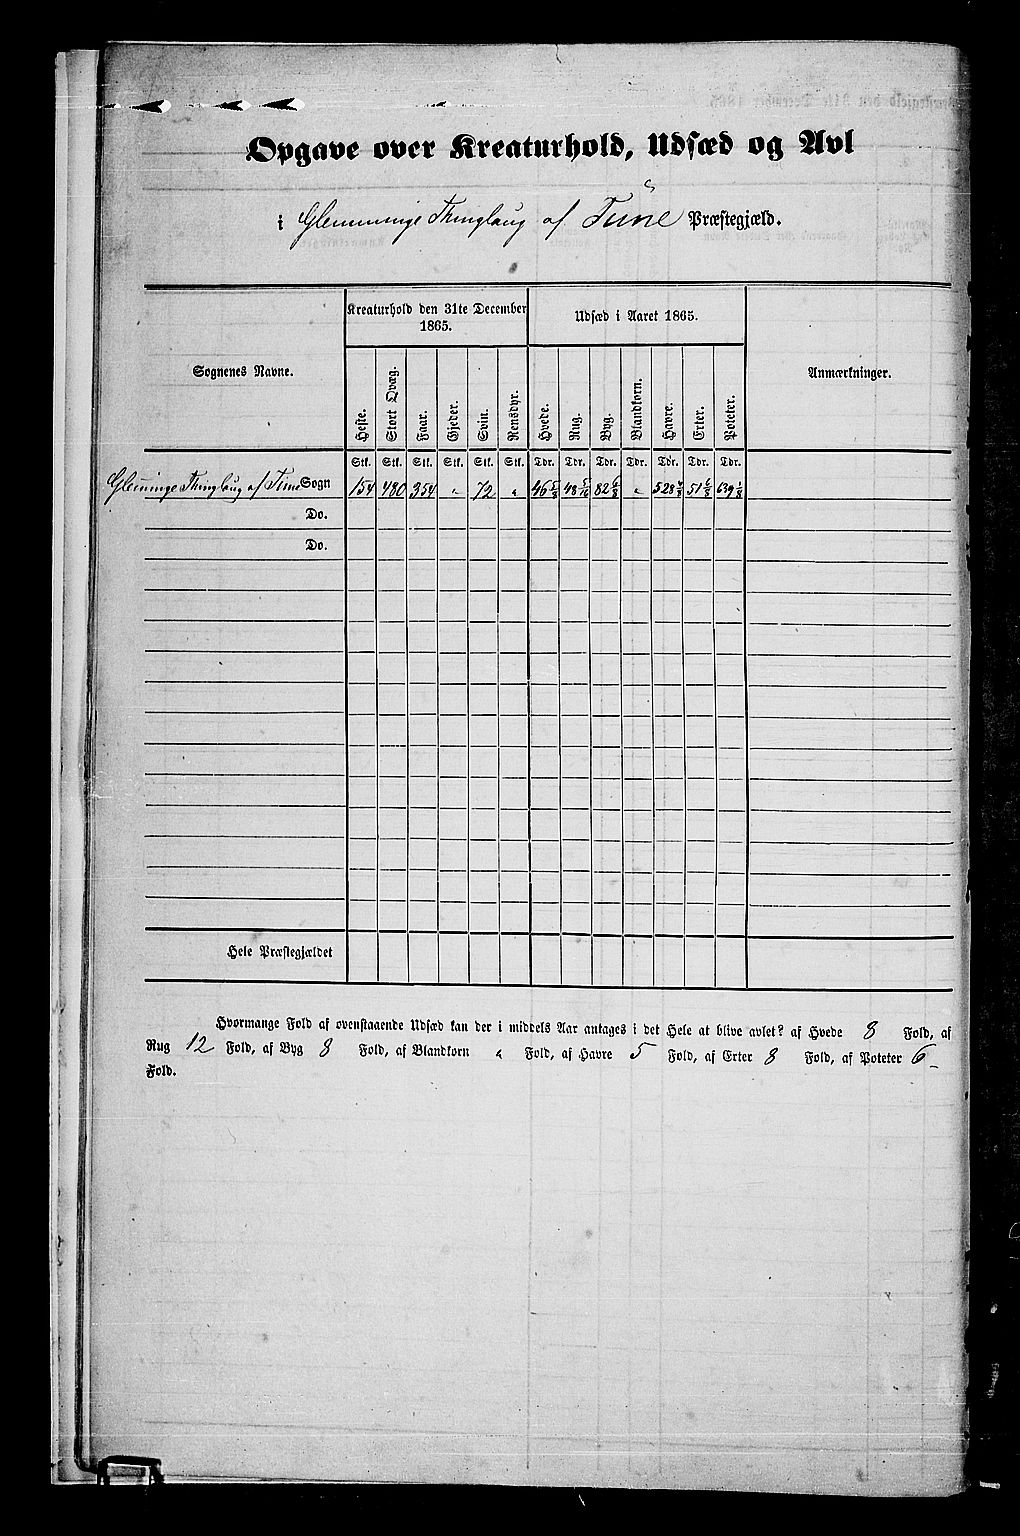 Opgave over Kreaturhold, Udsæd og Avl
i Glemminge Thinglaug af Tune Præstegjæld.
Sognenes Navne.
Kreaturhold den 31te December 1865.
Udsæd i Aaret 1865.
Anmærkninger.
Heste. Stort Qvæg. Faar. Gjeder. Svin. Rensdyr. Hvede. Rug. Byg. Blandkorn. Havre. Erter. Poteter.
Stk. Stk. Stk. Stk. Stk. Stk. Tdr. Tdr. Tdr. Tdr. Tdr. Tdr. Tdr.
Gleminge Thinglaug af Tune Sogn 154 480 354 „ 72 „ 46 5/8 48 5/16 82 6/8 „ 528 4/8 51 6/8 639 1/8
Do.
Do.
Hele Præstegjældet
Hvormange Fold af ovenstaaende Udsæd kan der i middels Aar antages i det Hele at blive avlet? af Hvede 8 Fold, af
Rug 12 Fold, af Byg 8 Fold, af Blandkorn „ Fold, af Havre 5 Fold, af Erter 8 Fold, af Poteter 6
Fold.